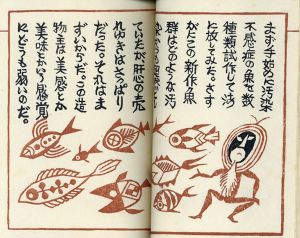 まず手始めに汚染
不感症の魚を数
種類試作して汚
に放してみた。さす
がだこの新作魚
群はどのような汚
ていたが肝心の売
れゆきはさっぱり
だった。それはま
ずいからだ。この造
物主は美感とか
美味とかいう感覚
にどうも弱いのだ。